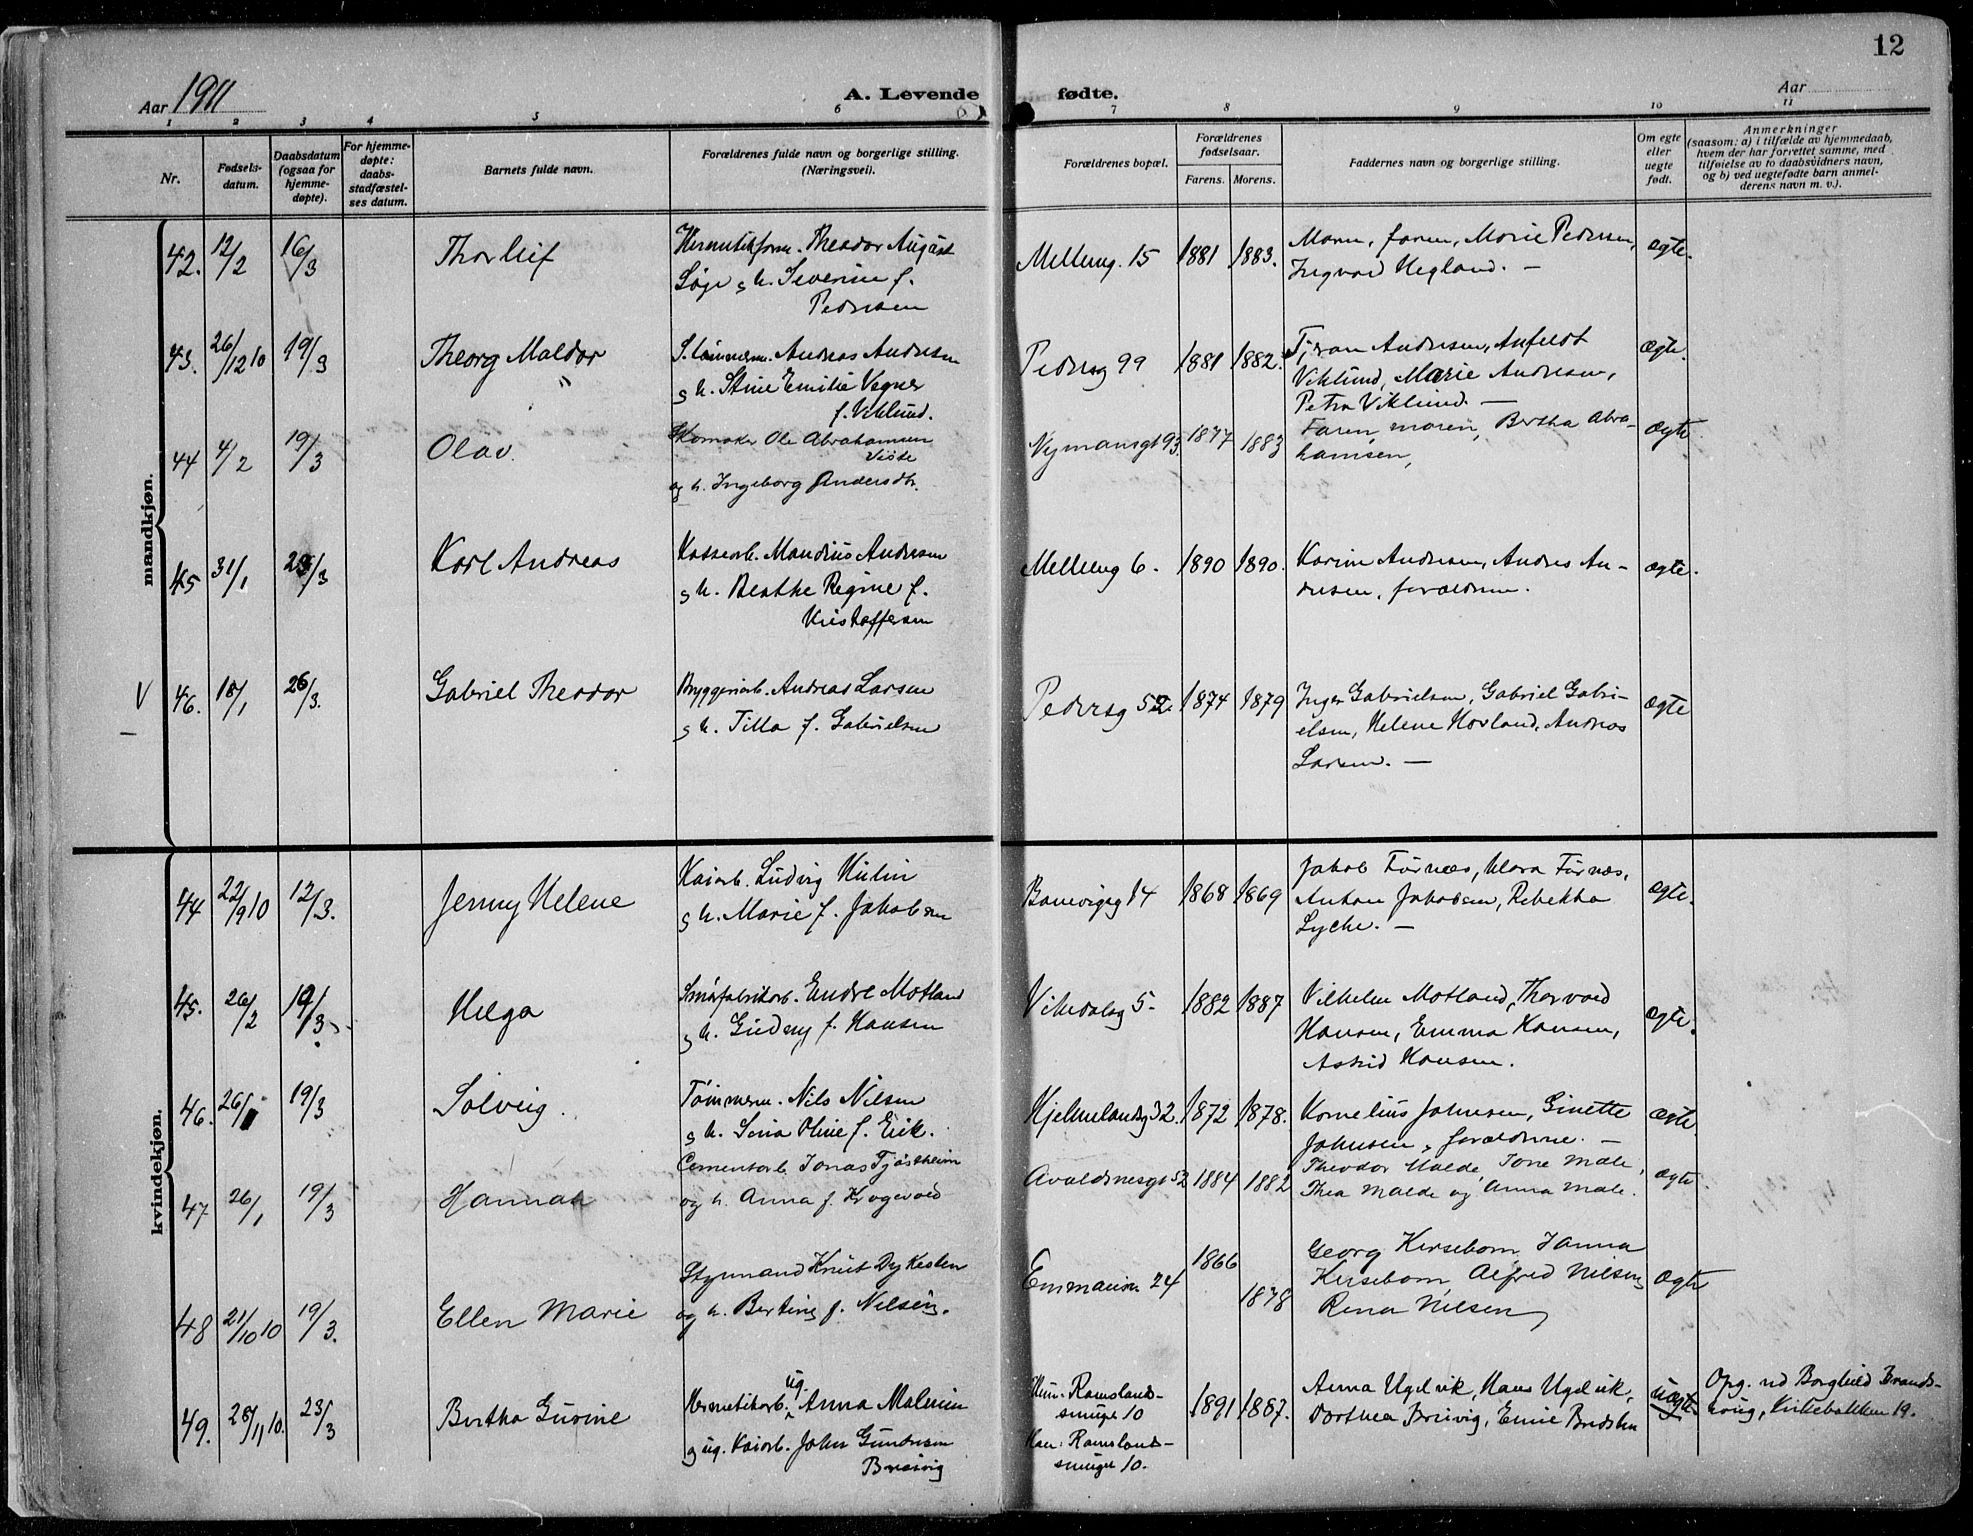 12
Aar 1911
A. Levende fødte.
Aar
1 2 3 4 5 6 7 8 9 10 11
Nr.
Fødsels-
datum.
Daabsdatum
(ogsaa for
hjemme-
døpte).
For hjemme-
døpte:
daabs-
stadfæstel-
ses datum.
Barnets fulde navn.
Forældrenes fulde navn og borgerlige stilling.
(Næringsvei).
Forældrenes bopæl.
Forældrenes
fødselsaar.
Farens. Morens.
Faddernes navn og borgerlige stilling.
Om egte
eller
uegte
født.
Anmerkninger
(saasom: a) i tilfælde av hjemmedaab,
hvem der har forrettet samme, med
tilføielse av to daabsvidners navn,
og b) ved uegtefødte barn anmel-
derens navn m. v.).
mandkjøn.
42. 12/2 16/3 Thorleif
Hermetikform. Theodor August
Søge g h. Severine f.
Pedersen
Melleng. 15 1881 1883.
Moren, faren, Marie Pedersen,
Ingvard Hegland. —
ægte.
43. 26/12 10 19/3 Theorg Maldor
Andreas Andresen
g h. Stine Emilie Vegner
f. Viklund.
Pedersg 99 1881 1882.
Andresen, Anfeldt
Viklund, Marie Andresen,
Petra Viklund. —
ægte.
44 4/2 19/3 Olav.
Skomaker Ole Abrahamsen
Viste
og h. Ingeborg Andersdtr.
Nymansgt 93. 1877 1883
Faren, moren, Bertha Abra-
hamsen,
ægte
45 31/1 23/3 Karl Andreas
Kassearb. Mandius Andresen
g h. Berthe Regine f.
Kristoffersen
Melleng 6. 1890 1890.
Karine Andresen, Andres An-
dresen, forældrene.
ægte.
V 46. 18/1 26/3. Gabriel Theodor
Bryggeriarb. Andreas Larsen
g h. Tilla f. Gabrielsen
Pedersg 52. 1874 1879
Inger Gabrielsen, Gabriel Gabri-
elsen, Helene Hovland, Andreas
Larsen. —
ægte
kvindekjøn.
44 22/9 10 12/3. Jenny Helene
Kaiarb. Ludvig Hulin
g h. Marie f. Jakobsen
Banevigsg 14 1868 1869
Jakob Furnæs, Klara Furnæs,
Anton Jakobsen, Rebekka
Lyche. —
ægte.
45. 26/2 19/3 Helga
Smørfabrikarb. Endre Motland
g h. Gudny f. Hansen
Vikedalsg 5. 1882 1887
Vilhelm Motland, Thorvald
Hansen, Emma Hansen,
Astrid Hansen.
ægte.
46. 26/1 19/3 Solveig.
Tømmerm. Nils Nilsen
g h. Sena Oline f. Eick.
Hjelmelandsg 32. 1872 1878.
Kornelius Johnsen, Ginette
Johnsen, forældrene. —
ægte.
47 26/1 19/3 Hannah
Cementarb. Jonas Tjøstheim
og h. Anna f. Krogevold
Avaldsnesgt 52 1884 1882
Theodor Malde, Tone Male,
Thea Malde og Anna Male.
ægte.
48 21/10 10 19/3. Ellen Marie
Styrmand Knut Dykesten
og h. Bertine f. Nilsen.
Emmausv. 24 1866 1878
Georg Kirsebom, Janna
Kirsebom, Alfred Nilsen,
Rena Nilsen
ægte
49. 28/11 10. 23/3 Bertha Gurine
Hermetikarb. ug. Anna Malmin
g ug. Kaiarb. John Gundersen
Breivig
Hun: Ramsland-
smuget 10
Han: Ramsland-
smuget 10.
1891 1887.
Anna Ugelvik, Hans Ugelvik,
Dorthea Breivig, Emil
uægte.
Opg. ved Borghild Brands-
Kirkebakken 19.